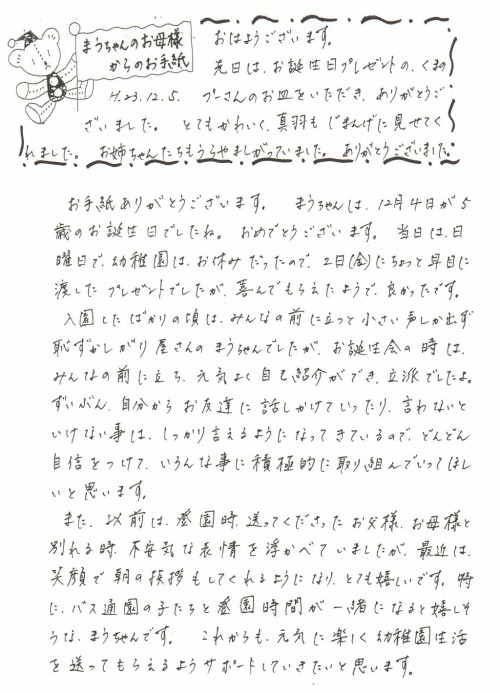 まうちゃんのお母様
からのお手紙
H.23.12.5.
おはようございます。
先日は、お誕生日プレゼントの、くまの
プーさんのお皿をいただき、ありがとうご
ざいました。 とてもかわいく、真羽もじまんげに見せてく
れました。 お姉ちゃんたちもうらやましがっていました。 ありがとうございました。
お手紙ありがとうございます。 まうちゃんは、12月4日が5
歳のお誕生日でしたね。 おめでとうございます。 当日は、日
曜日で、幼稚園は、お休みだったので、2日(金)にちょっと早目に
渡したプレゼントでしたが、喜んでもらえたようで、良かったです。
入園したばかりの頃は、みんなの前に立つと小さい声しか出ず
恥ずかしがり屋さんのまうちゃんでしたが、お誕生会の時は、
みんなの前に立ち、元気よく自己紹介ができ、立派でしたよ。
ずいぶん、自分からお友達に話しかけていったり、言わないと
いけない事は、しっかり言えるようになってきているので、どんどん
自信をつけて、いろんな事に積極的に取り組んでいってほし
いと思います。
また、以前は、登園時、送ってくださったお父様、お母様と
別れる時、不安気な表情を浮かべていましたが、最近は、
笑顔で朝の挨拶もしてくれるようになり、とても嬉しいです。特
に、バス通園の子たちと登園時間が一緒になると嬉しそ
うな、まうちゃんです。 これからも、元気に楽しく幼稚園生活
を送ってもらえるようサポートしていきたいと思います。